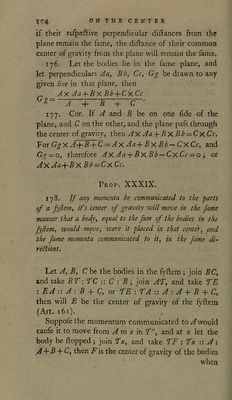 104 ON THE CENTER
if their reſpective perpendicular diſtances from the
plane remain the ſame, the diſtance of their common
center of gravity from the plane will remain the ſame.
176. Let the bodies lie in the ſame plane, and
let perpendiculars Aa, Bb, Cc, Gg be drawn to any
given line in that plane, then
Gg = A×Aa+B×Bb+C×Cc / A + B + C.
177. Cor. If A and B be on one ſide of the
plane, and C on the other, and the plane paſs through
the center of gravity, then A×Aa+B×Bb=C×Cc.
For Gg×A+B+C=A×Aa+B×Bb−C×Cc, and
Gg=o, therefore A×Aa+B×Bb−C×Cc=o; or
A×Aa+B×Bb=C×Cc.
PROP. XXXIX.
178. If any momenta be communicated to the parts
of a ſyſtem, it's center of gravity will move in the ſame
manner that a body, equal to the ſum of the bodies in the
ſyſtem, would move, were it placed in that center, and
the ſame momenta communicated to it, in the ſame di-
rections.
Let A, B, C be the bodies in the ſyſtem; join BC,
and take BT : TC :: C : B; join AT, and take TE
: EA :: A : B + C, or TE : TA :: A : A + B + C,
then will E be the center of gravity of the ſyſtem
(Art. 161).
Suppoſe the momentum communicated to A would
cauſe it to move from A to x in T″, and at x let the
body be ſtopped; join Tx, and take TF : Tx :: A :
A+B+C, then F is the center of gravity of the bodies
when